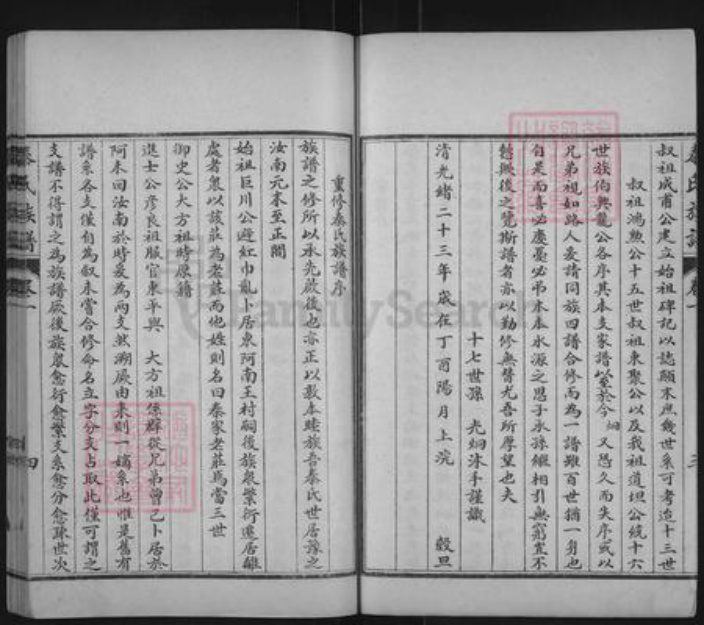 叔祖成甫公建立始祖碑記以誌顛末庶幾世系可考迨十三世
叔祖鴻勲公十五世叔祖東聚公以及我祖道坦公統十六
世族伯興龍公各序其本支家譜以至於今炯又恐久而失序或以
兄弟視如路人爰請同族四譜合修而為一譜雖百世猶一身也
自是而喜必慶憂必弔木本水源之思子承孫繼相引無窮豈不
懿歟後之覽斯譜者亦以勤修無替尤吾所厚望也夫
十七世孫 光炯沐手謹識
清光緒二十三年歲在丁酉陽月上浣 穀旦
重修秦氏族譜序
族譜之修所以承先啟後也亦正以敦本睦族吾秦氏世居豫之
汝南元末至正間
始祖巨川公避紅巾亂卜居東阿南王村嗣後族衆繁衍遷居雖
處者衆以該莊為老莊而他姓則名曰秦家老莊焉當三世
御史公大方祖時原籍
進士公彥良祖服官東平與 大方祖係群從兄弟曾已卜居於
阿未回汝南於時爰為兩支然溯厥由來則一嫡系也惟是舊有
譜系各支僅自為叙未嘗合修命名立字分支占取此僅可謂之
支譜不得謂之為族譜厥後族衆愈衍愈繁支系愈分愈疎世次
秦氏族譜
卷一
四
秦氏族譜
卷一
三
FamilySearch